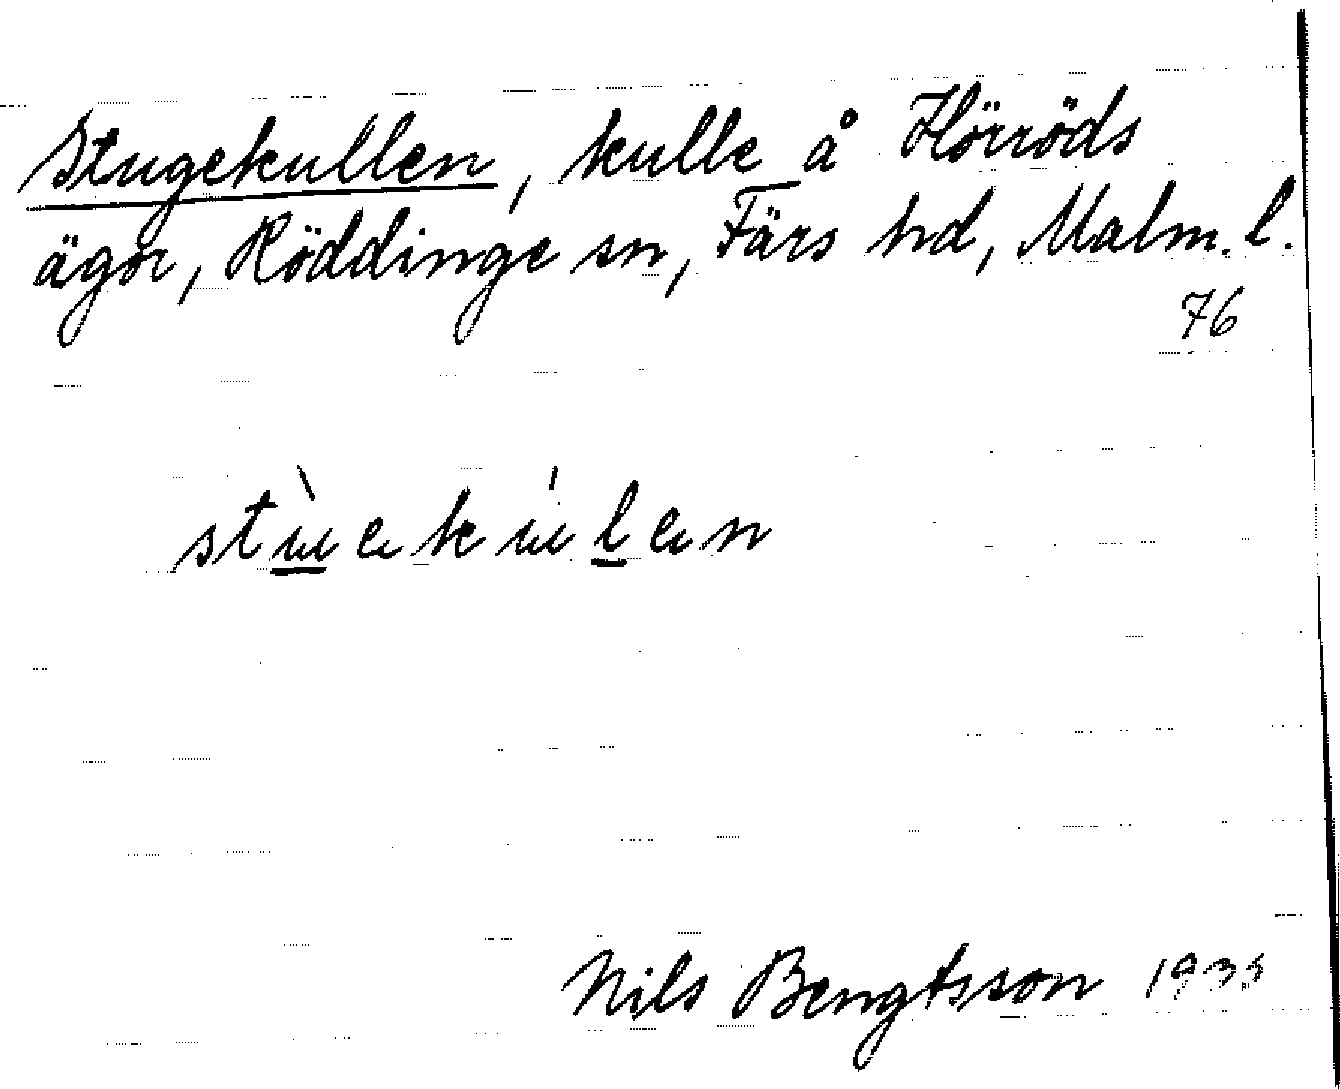 Stugekullen, kulle å Hörröds
ägor, Röddinge sn, Färs hd, Malm. l.
76
Nils Bengtsson